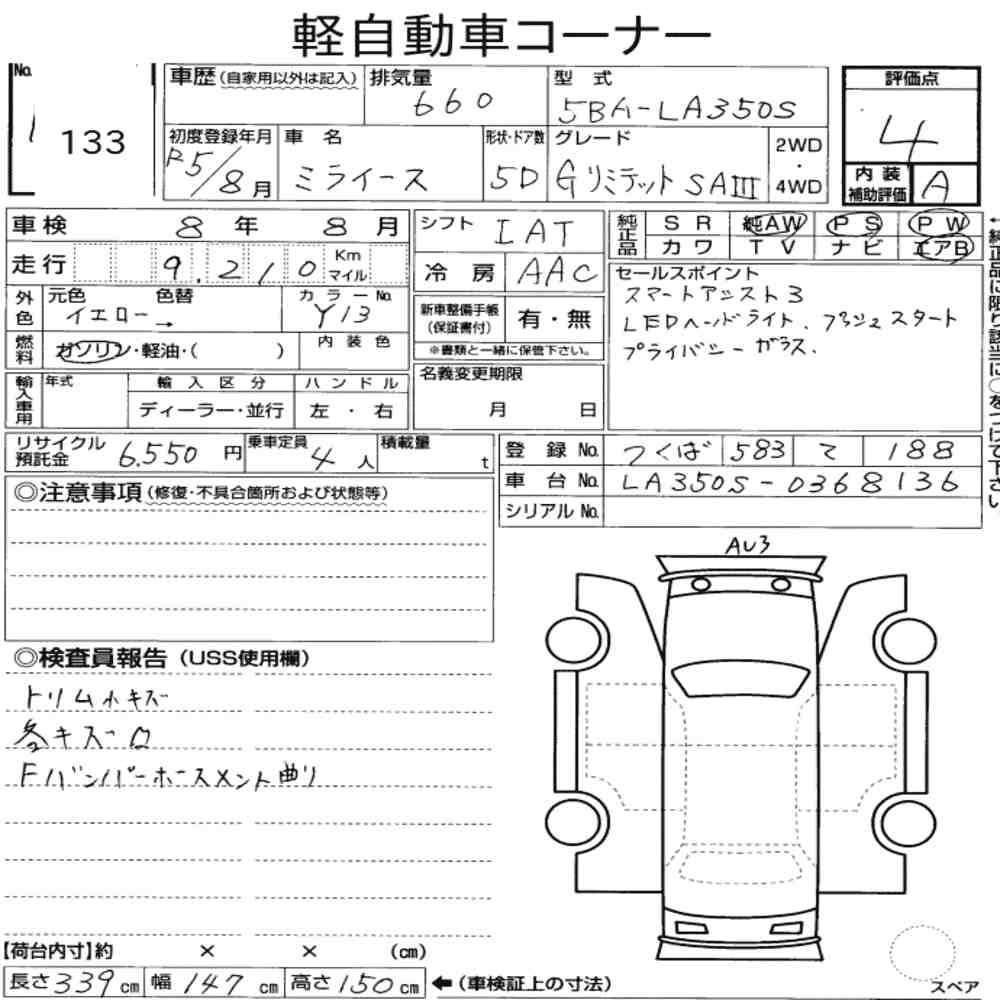 軽自動車コーナー
No. 133
車歴(自家用以外は記入) 排気量 660 型式 5BA-LA350S 評価点 4
初度登録年月 R5/8月 車名 ミライース 形状・ドア数 5D グレード Gリミテット SAIII 2WD・4WD 内装補助評価 A
車検 8年 8月 シフト IAT 純正品 SR 純AW PS PW
カワ TV ナビ エアB
走行 9,210 Kmマイル 冷房 AAC セールスポイント
スマートアシスト3
LEDヘッドライト、プッシュスタート
プライバシーガラス.
外色 元色 イエロー→ 色替 カラーNo. Y13 新車整備手帳(保証書付) 有・無
※書類と一緒に保管下さい。
燃料 ガソリン・軽油・( ) 内装色
輸入車用 年式 輸入区分 ディーラー・並行 ハンドル 左・右 名義変更期限 月 日
←純正品に限り該当に○をつけて下さい
リサイクル預託金 6.550円 乗車定員 4人 積載量 t
登録No. つくば 583 て 188
車台No. LA350S-0368136
シリアルNo.
◎注意事項(修復・不具合箇所および状態等)
AU3
◎検査員報告(USS使用欄)
トリム小キズ
各キズ凹
Fバンパーホースメント曲リ
【荷台内寸】約 × × (cm)
長さ339cm 幅147cm 高さ150cm ←(車検証上の寸法)
スペア